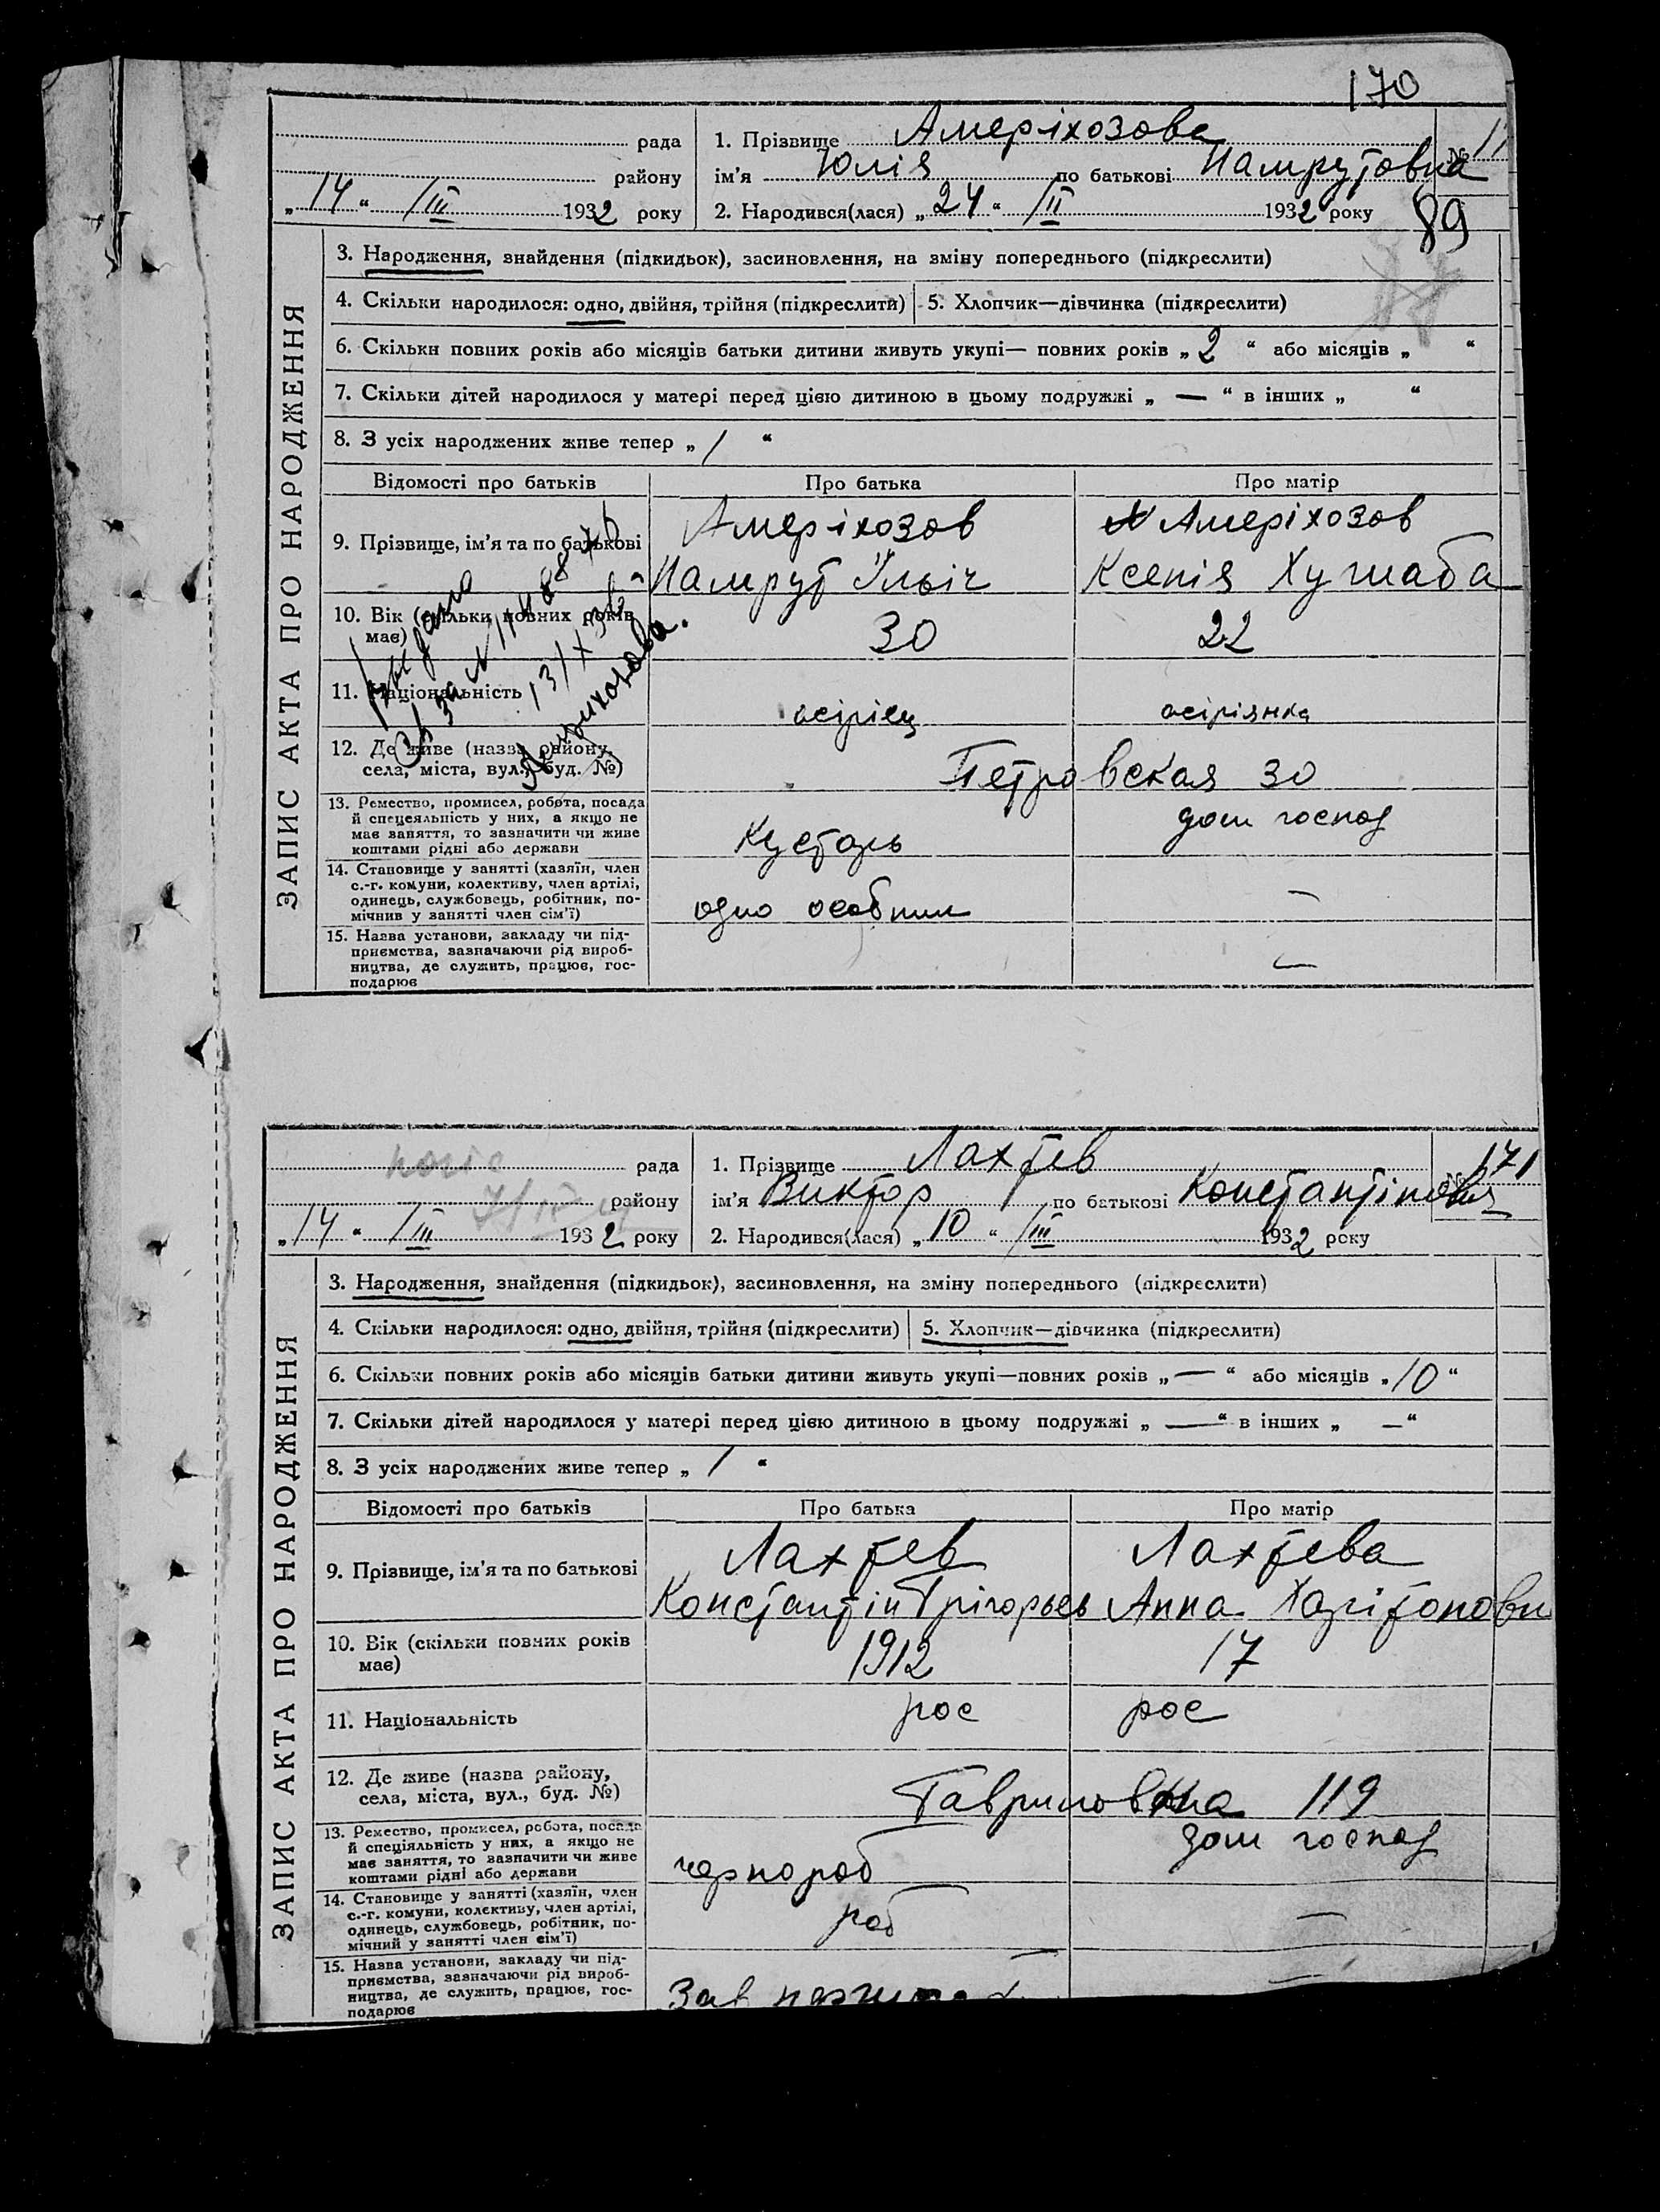 170
рада
району
„14“ /III 1932 року
1. Прізвище Амеріхозова
ім'я Юлія по батькові Намрутовна
2. Народився(лася) „24“ /II 1932 року
№ 17
89
ЗАПИС АКТА ПРО НАРОДЖЕННЯ
3. Народження, знайдення (підкидьок), засиновлення, на зміну попереднього (підкреслити)
4. Скільки народилося: одно, двійня, трійня (підкреслити) 5. Хлопчик—дівчинка (підкреслити)
6. Скільки повних років або місяців батьки дитини живуть укупі— повних років „2“ або місяців „ “
7. Скільки дітей народилося у матері перед цією дитиною в цьому подружжі „—“ в інших „ “
8. З усіх народжених живе тепер „1“
Відомості про батьків Про батька Про матір
9. Прізвище, ім'я та по батькові
Амеріхозов Амеріхозов
Намрут Ільіч Ксенія Хушаба
10. Вік (скільки повних років
має)
30 22
11. Національність
осірієц осіріянка
12. Де живе (назва району,
села, міста, вул., буд. №)
Петровская 30
13. Ремество, промисел, робота, посада
й спецеяльність у них, а якщо не
має заняття, то зазначити чи живе
коштами рідні або держави
Кустарь дом господ
14. Становище у занятті (хазяїн, член
с.-г. комуни, колективу, член артілі,
одинець, службовець, робітник, по-
мічнив у занятті член сім'ї)
одно особник —
15. Назва установи, закладу чи під-
приємства, зазначаючи рід вироб-
ництва, де служить, працює, гос-
подарює
—
рада
району
„14“ /III 1932 року
1. Прізвище Лахтев
ім'я Виктор по батькові Константінович
2. Народився(лася) „10“ /III 1932 року
№ 171
ЗАПИС АКТА ПРО НАРОДЖЕННЯ
3. Народження, знайдення (підкидьок), засиновлення, на зміну попереднього (підкреслити)
4. Скільки народилося: одно, двійня, трійня (підкреслити) 5. Хлопчик—дівчинка (підкреслити)
6. Скільки повних років або місяців батьки дитини живуть укупі—повних років „—“ або місяців „10“
7. Скільки дітей народилося у матері перед цією дитиною в цьому подружжі „—“ в інших „—“
8. З усіх народжених живе тепер „1“
Відомості про батьків Про батька Про матір
9. Прізвище, ім'я та по батькові
Лахтев Лахтева
Константін Грігорьев Анна Харітоновн
10. Вік (скільки повних років
має)
1912 17
11. Національність
рос рос
12. Де живе (назва району,
села, міста, вул., буд. №)
Гавриловка 119
13. Ремество, промисел, робота, посада
й спеціяльність у них, а якщо не
має заняття, то зазначити чи живе
коштами рідні або держави
чернороб дом господ
14. Становище у занятті (хазяїн, член
с.-г. комуни, колективу, член артілі,
одинець, службовець, робітник, по-
мічний у занятті член сім'ї)
роб —
15. Назва установи, закладу чи під-
приємства, зазначаючи рід вироб-
ництва, де служить, працює, гос-
подарює
Зав —